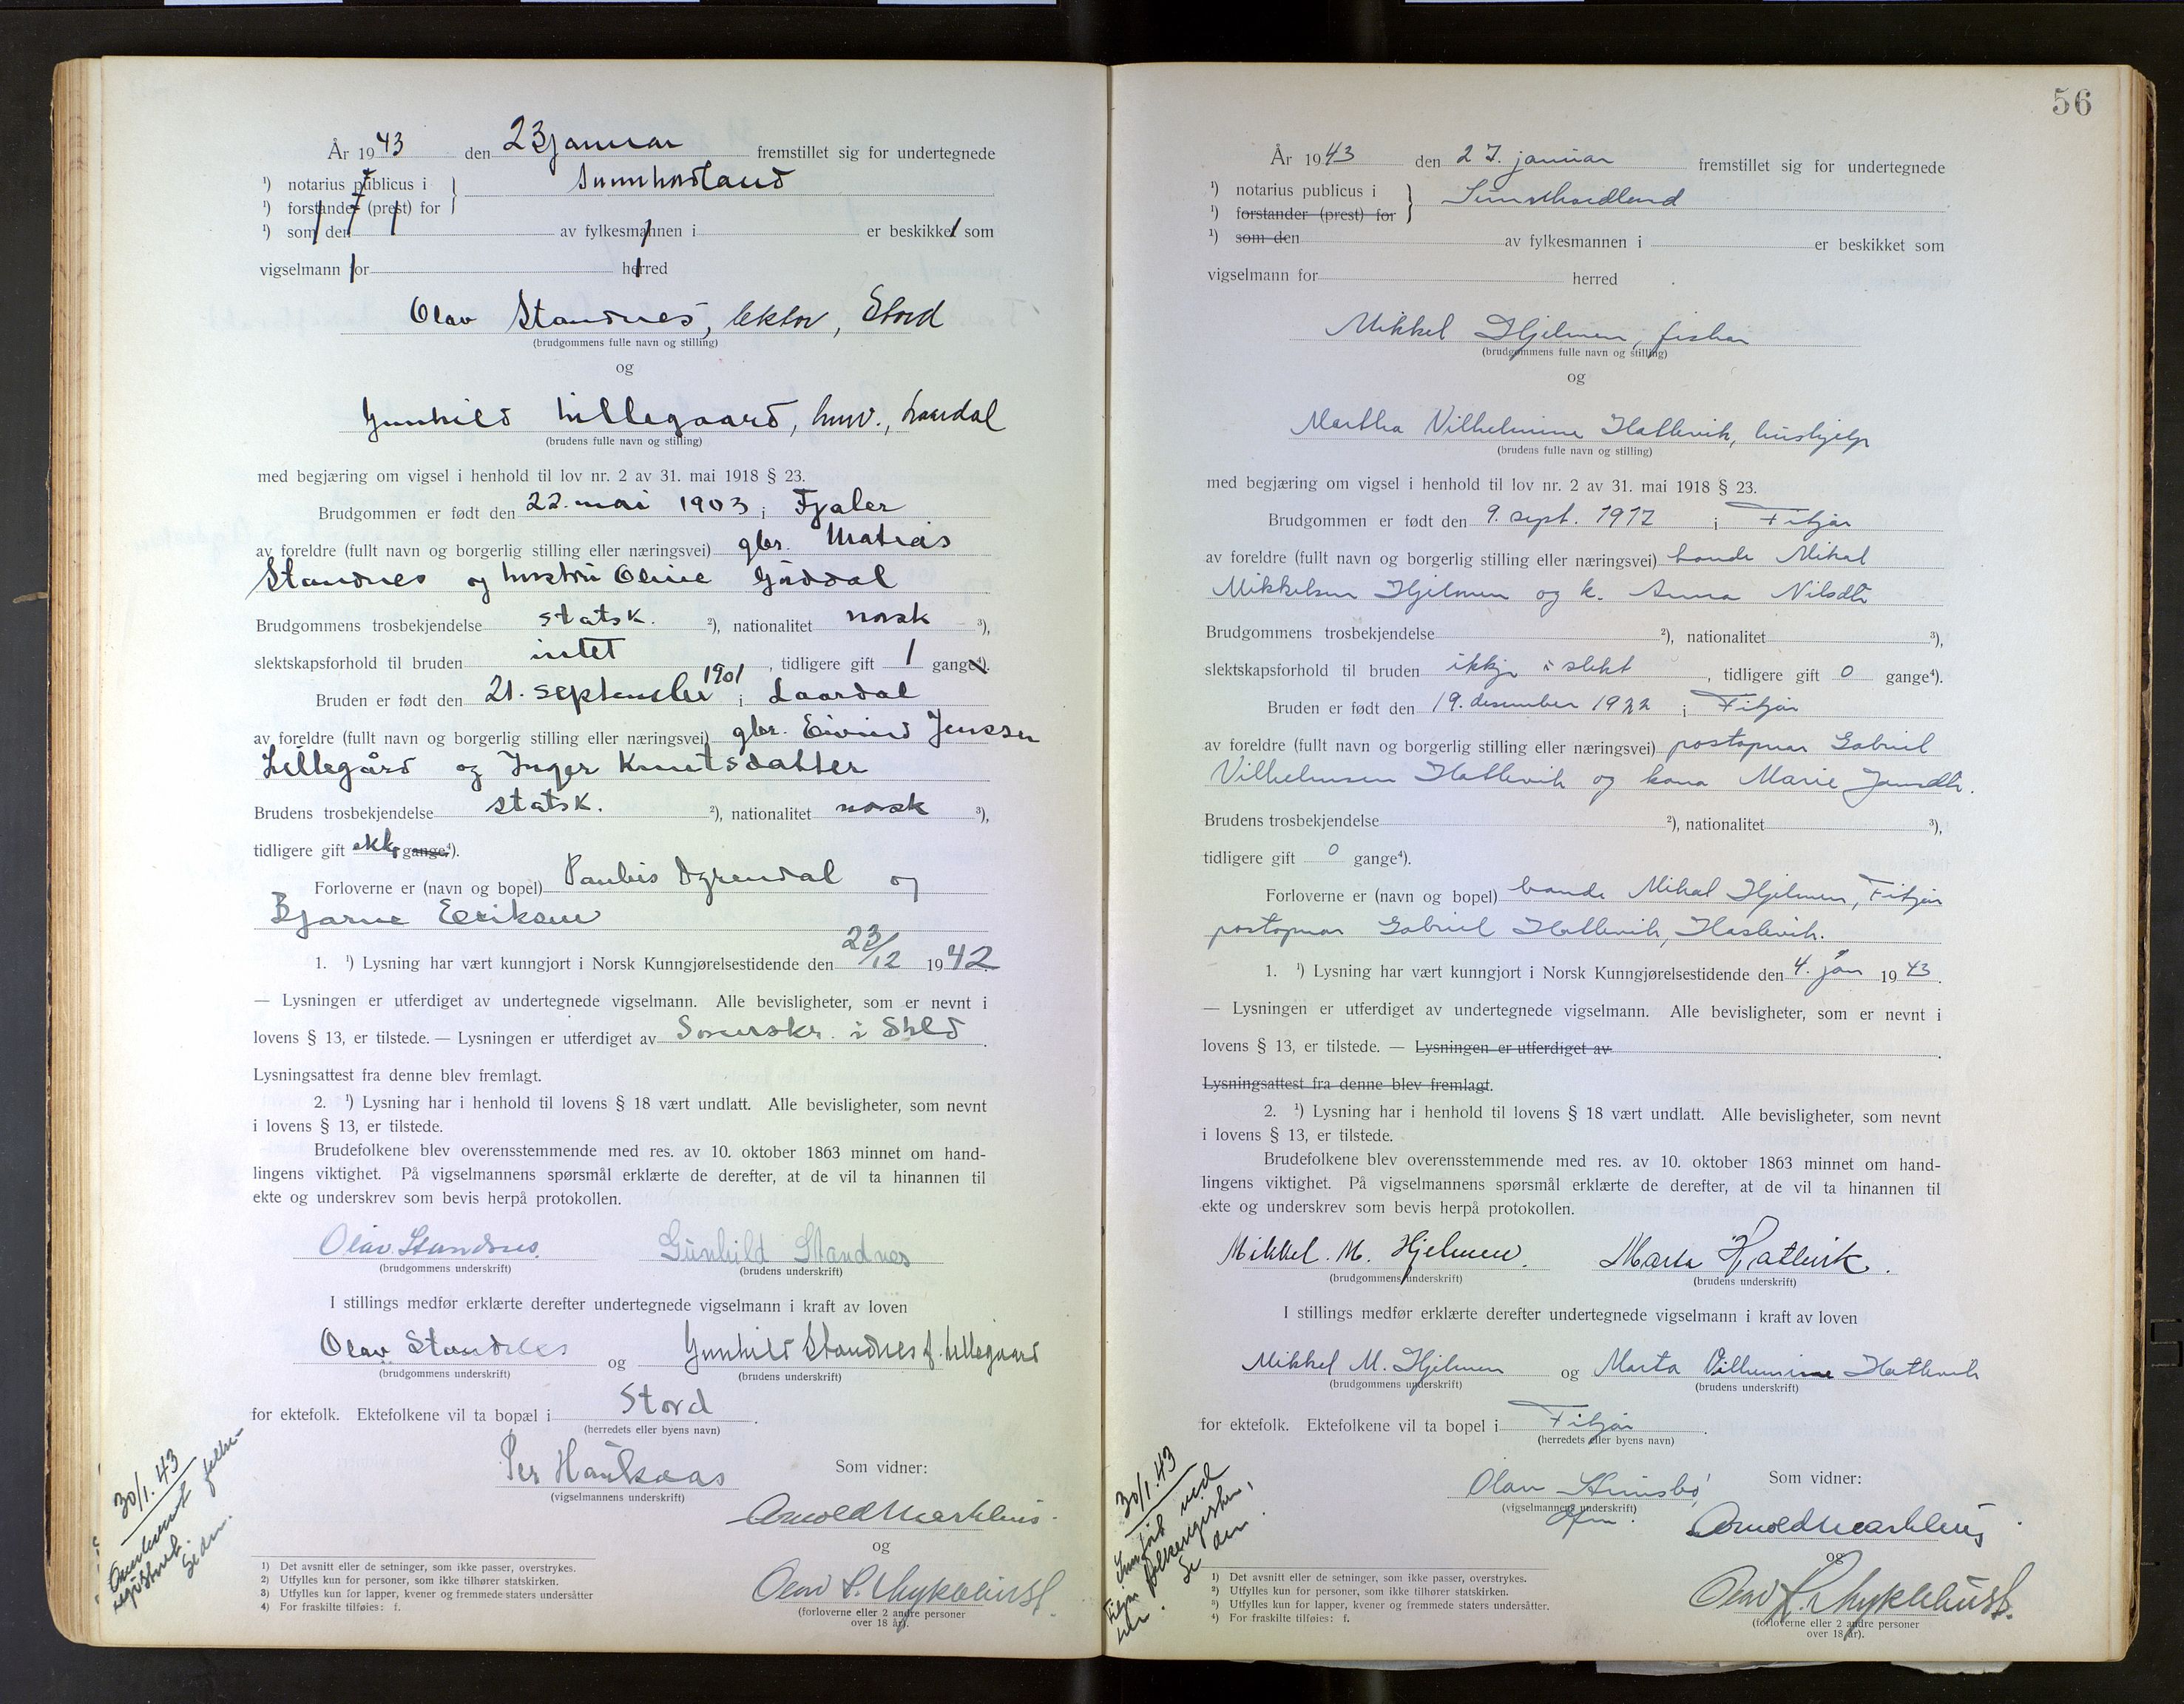 År 1943 den 23 januar fremstillet sig for undertegnede
¹) notarius publicus i } Sunnhordland
¹) forstander (prest) for
¹) som den av fylkesmannen i er beskikket som
vigselmann for herred
Olav Standnes, lektor, Stord
(brudgommens fulle navn og stilling)
og
Gunhild Lillegaard, husv., Laardal
(brudens fulle navn og stilling)
med begjæring om vigsel i henhold til lov nr. 2 av 31. mai 1918 § 23.
Brudgommen er født den 22. mai 1903 i Fjaler
av foreldre (fullt navn og borgerlig stilling eller næringsvei) gbr. Matias
Standnes og hustru Oline Gåddal
Brudgommens trosbekjendelse statsk. ²), nationalitet norsk ³),
slektskapsforhold til bruden intet, tidligere gift 1 gange⁴).
Bruden er født den 21. september 1901 i Laardal
av foreldre (fullt navn og borgerlig stilling eller næringsvei) gbr. Eivind Jensson
Lillegård og Inger Knutsdatter
Brudens trosbekjendelse statsk. ²), nationalitet norsk ³),
tidligere gift ikke gange⁴).
Forloverne er (navn og bopel) Paulus Dyrendal og
Bjarne Eriksen
1. ¹) Lysning har vært kunngjort i Norsk Kunngjørelsestidende den 23/12 1942.
— Lysningen er utferdiget av undertegnede vigselmann. Alle bevisligheter, som er nevnt i
lovens § 13, er tilstede. — Lysningen er utferdiget av Sorenskr. i
Lysningsattest fra denne blev fremlagt.
2. ¹) Lysning har i henhold til lovens § 18 vært undlatt. Alle bevisligheter, som nevnt
i lovens § 13, er tilstede.
Brudefolkene blev overensstemmende med res. av 10. oktober 1863 minnet om hand-
lingens viktighet. På vigselmannens spørsmål erklærte de derefter, at de vil ta hinannen til
ekte og underskrev som bevis herpå protokollen.
Olav Standnes. Gunhild Standnes
(brudgommens underskrift) (brudens underskrift)
I stillings medfør erklærte derefter undertegnede vigselmann i kraft av loven
Olav Standnes og Gunhild Standnes f. Lillegaard
(brudgommens underskrift) (brudens underskrift)
for ektefolk. Ektefolkene vil ta bopæl i Stord.
(herredets eller byens navn)
Per Hauknaas
(vigselmannens underskrift)
Som vidner:
Arnold Marklus.
og
Olav S. Myklebust.
(forloverne eller 2 andre personer
over 18 år).
30/1.43
Se dn.
1) Det avsnitt eller de setninger, som ikke passer, overstrykes.
2) Utfylles kun for personer, som ikke tilhører statskirken.
3) Utfylles kun for lapper, kvener og fremmede staters undersåtter
4) For fraskilte tilføies: f.
56
År 1943 den 27. januar fremstillet sig for undertegnede
¹) notarius publicus i } Sunnhordland
¹) forstander (prest) for
¹) som den av fylkesmannen i er beskikket som
vigselmann for herred
Mikkel Hjelmen, fiskar
(brudgommens fulle navn og stilling)
og
Martha Vilhelmine Hatlevik, hushjelp
(brudens fulle navn og stilling)
med begjæring om vigsel i henhold til lov nr. 2 av 31. mai 1918 § 23.
Brudgommen er født den 9. sept. 1917 i Fitjar
av foreldre (fullt navn og borgerlig stilling eller næringsvei) bonde Mikal
Mikkelsen Hjelmen og k. Anna Nilsdtr
Brudgommens trosbekjendelse ²), nationalitet ³),
slektskapsforhold til bruden ikkje i slekt, tidligere gift 0 gange⁴).
Bruden er født den 19. desember 1922 i Fitjar
av foreldre (fullt navn og borgerlig stilling eller næringsvei) postopnar Gabriel
Vilhelmsen Hatlevik og kona Marie Jansdtr.
Brudens trosbekjendelse ²), nationalitet ³),
tidligere gift 0 gange⁴).
Forloverne er (navn og bopel) bonde Mikal Hjelmen, Fitjar
postopnar Gabriel Hatlevik, Hatlevik.
1. ¹) Lysning har vært kunngjort i Norsk Kunngjørelsestidende den 4. jan 1943.
— Lysningen er utferdiget av undertegnede vigselmann. Alle bevisligheter, som er nevnt i
lovens § 13, er tilstede. — Lysningen er utferdiget av
Lysningsattest fra denne blev fremlagt.
2. ¹) Lysning har i henhold til lovens § 18 vært undlatt. Alle bevisligheter, som nevnt
i lovens § 13, er tilstede.
Brudefolkene blev overensstemmende med res. av 10. oktober 1863 minnet om hand-
lingens viktighet. På vigselmannens spørsmål erklærte de derefter, at de vil ta hinannen til
ekte og underskrev som bevis herpå protokollen.
Mikkel. M. Hjelmen. Marta Hatlevik.
(brudgommens underskrift) (brudens underskrift)
I stillings medfør erklærte derefter undertegnede vigselmann i kraft av loven
Mikkel M. Hjelmen og Marta Vilhemine Hatlevik
(brudgommens underskrift) (brudens underskrift)
for ektefolk. Ektefolkene vil ta bopel i Fitjar.
(herredets eller byens navn)
Olav
(vigselmannens underskrift)
Som vidner:
Arnold Marklus
og
Olav S. Myklebust.
(forloverne eller 2 andre personer
over 18 år).
30/1.43
Se dn.
1) Det avsnitt eller de setninger, som ikke passer, overstrykes.
2) Utfylles kun for personer, som ikke tilhører statskirken.
3) Utfylles kun for lapper, kvener og fremmede staters undersåtter.
4) For fraskilte tilføies: f.